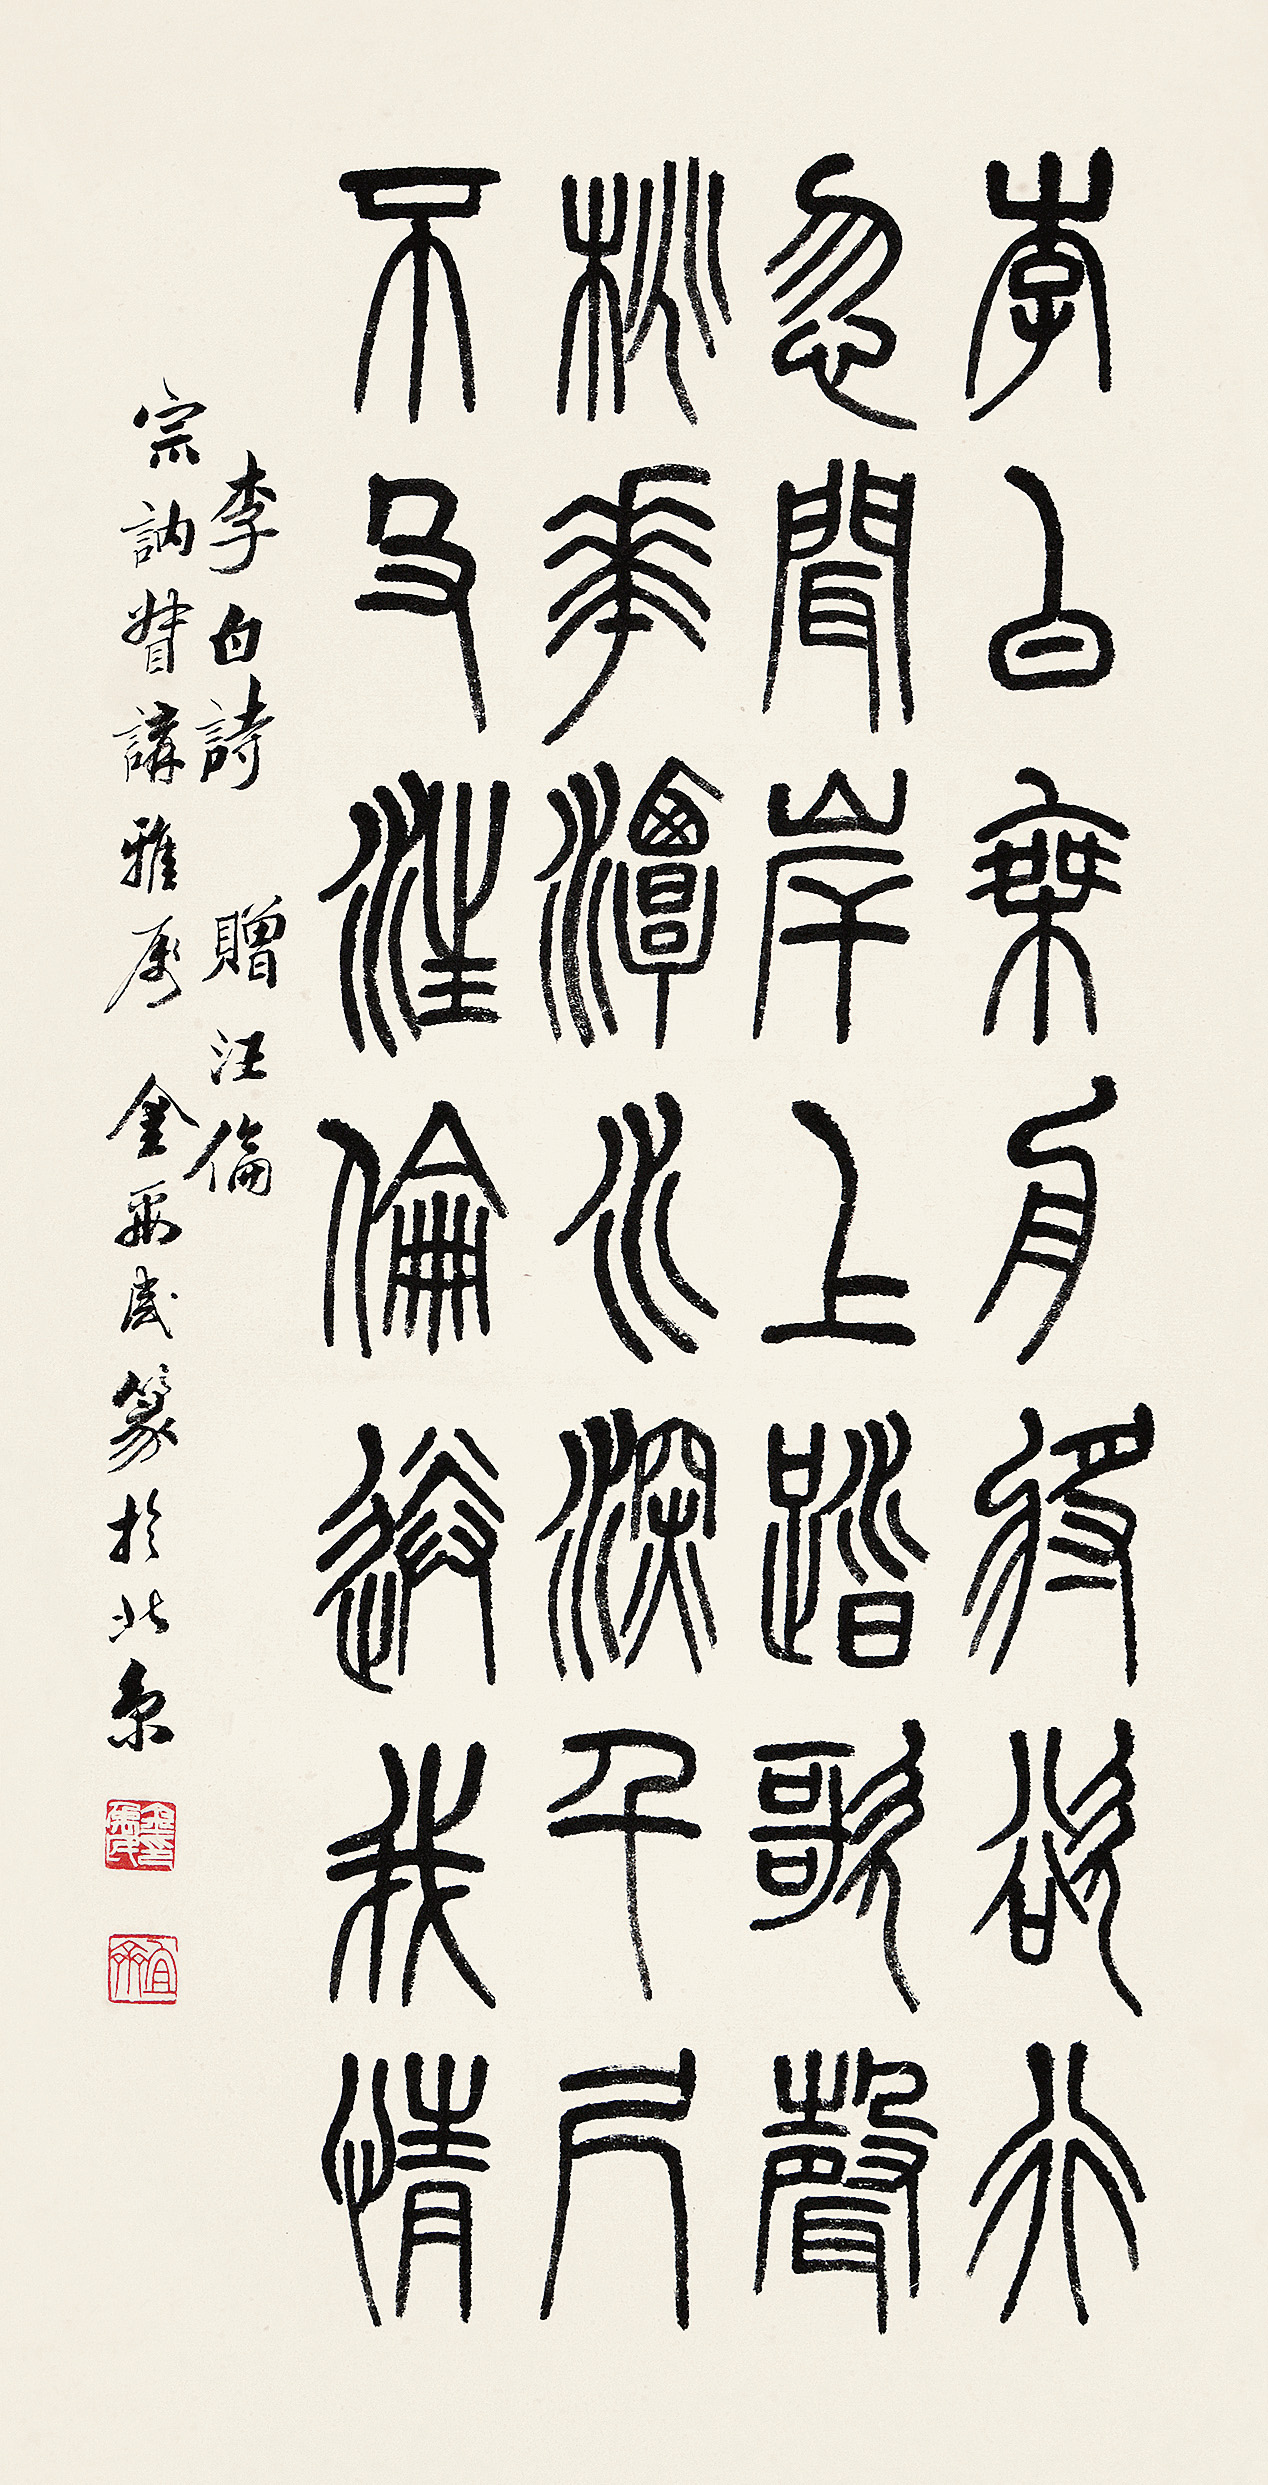 李白乘舟將欲行
忽聞岸上踏歌聲
桃華潭水深千尺
不及汪倫送我情
李白詩 贈汪倫
宗訥督講雅屬 金禹民篆於北京